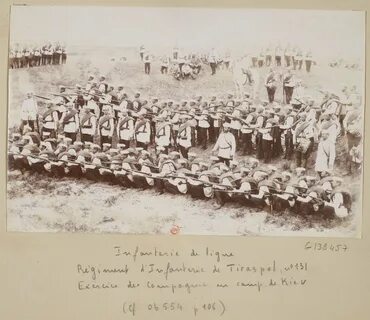 G 138457
Infanterie de ligne
Régiment d'Infanterie de Tiraspol, n° 131
Exercice de Compagnie au camp de Kiev
(cf Ob 554 p 106.)